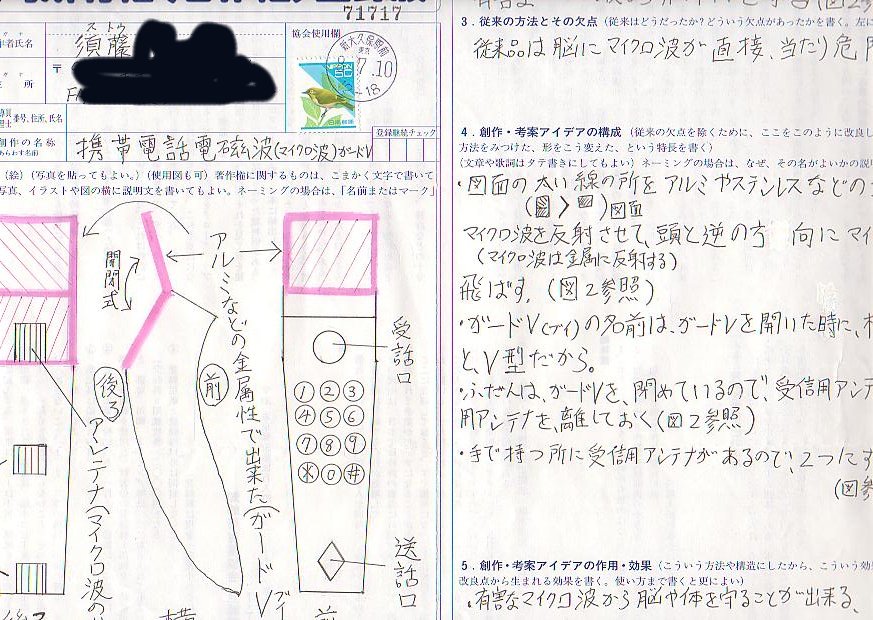 71717
ストウ
作者氏名
須藤
協会使用欄
新大久保駅前
7.10
-18
〒
住所
番号、住所、氏名
創作の名称
あらわす名前
携帯電話電磁波(マイクロ波)ガードV
登録継続チェック
(絵)(写真を貼ってもよい。)(使用図も可)著作権に関するものは、こまかく文字で書いて
写真、イラストや図の横に説明文を書いてもよい。ネーミングの場合は、「名前またはマーク」
開閉式
アルミなどの金属性で出来た(ガードV
ブイ
前
後ろ
アンテナ(マイクロ波の
受話口
①②③
④⑤⑥
⑦⑧⑨
＊0＃
送話口
横
前
後ろ
3．従来の方法とその欠点(従来はどうだったか?どういう欠点があったかを書く。左に
従来品は脳にマイクロ波が直接、当たり危
4．創作・考案アイデアの構成(従来の欠点を除くために、ここをこのように改良し
方法をみつけた、形をこう変えた、という特長を書く)
(文章や歌詞はタテ書きにしてもよい)ネーミングの場合は、なぜ、その名がよいかの説
・図面の太い線の所をアルミやステンレスなどの
( > )図面
マイクロ波を反射させて、頭と逆の方向にマイ
(マイクロ波は金属に反射する)
飛ばす。(図2参照)
・ガードV(ブイ)の名前は、ガードVを開いた時に、
と、V型だから。
・ふだんは、ガードVを、閉めているので、受信用アンテ
用アンテナを、離しておく(図2参照)
・手で持つ所に受信用アンテナがあるので、2つにす
(図参
5．創作・考案アイデアの作用・効果(こういう方法や構造にしたから、こういう効
改良点から生まれる効果を書く。使い方まで書くと更によい)
・有害なマイクロ波から脳や体を守ることが出来る、